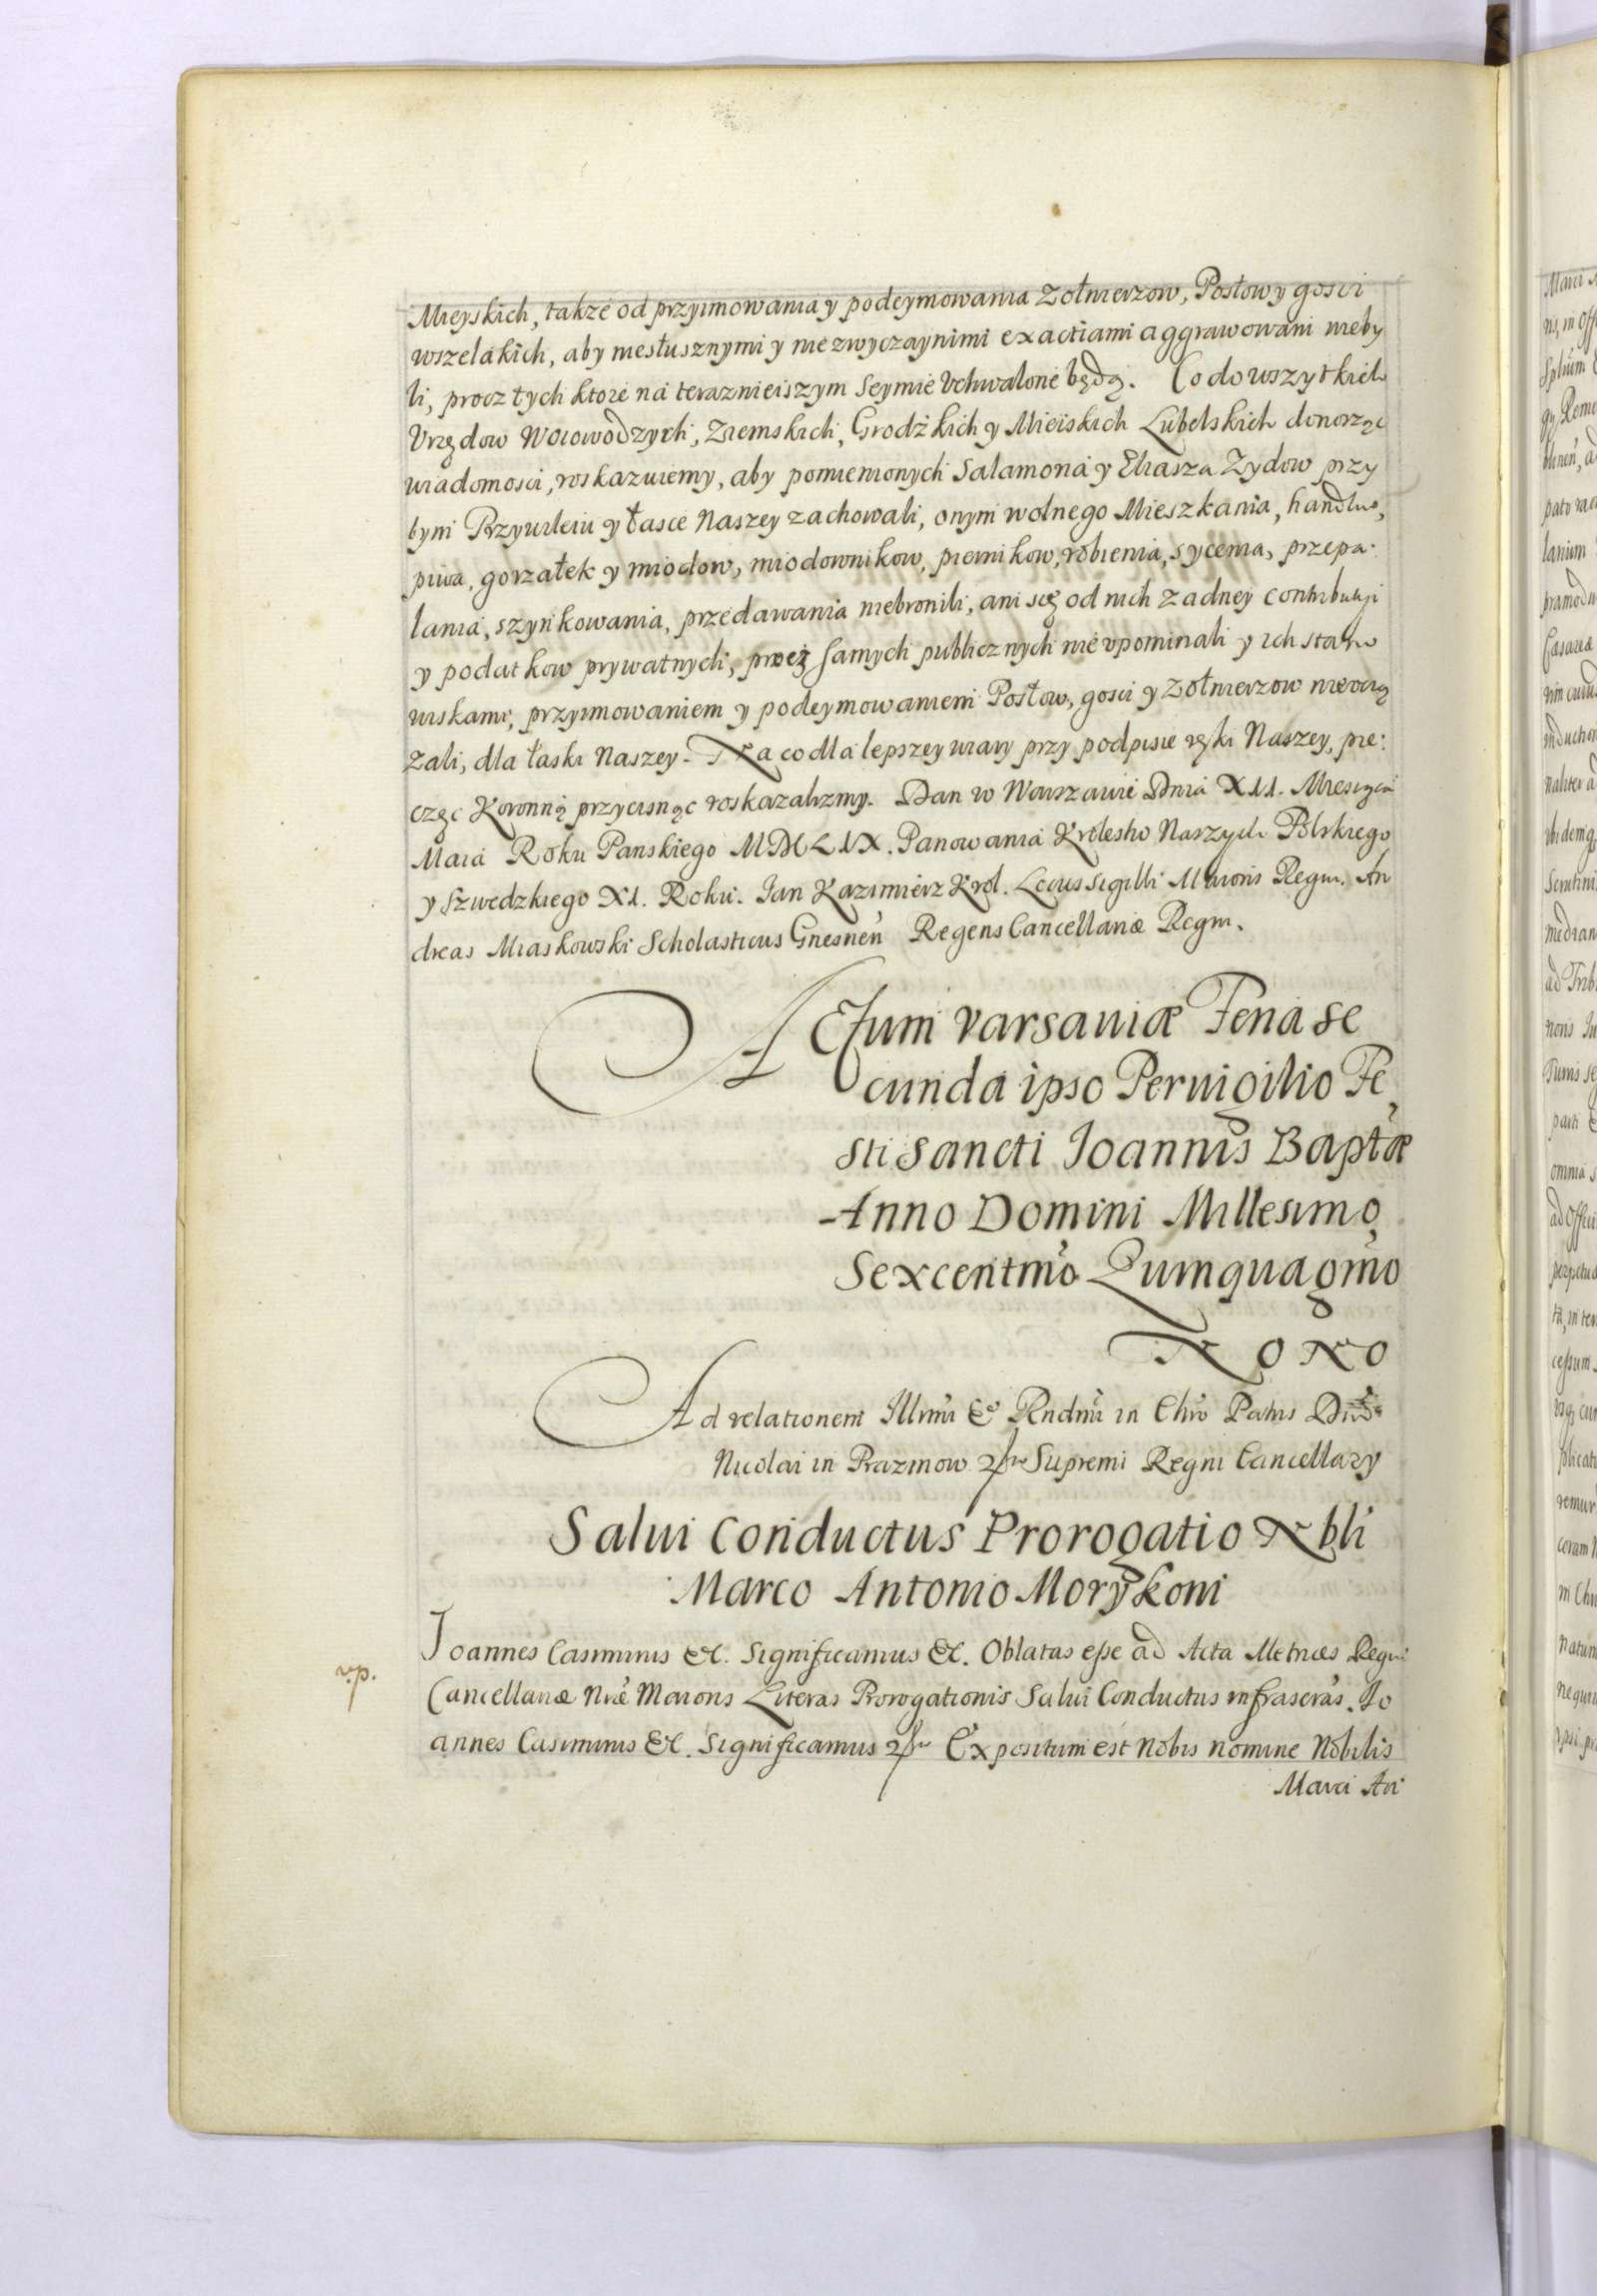 Mieyskich, także od przyimowania y podeymowania Zołnierzow, Posłow y gosci
wszelakich, aby niesłusznymi y niezwyczaynimi exactiami aggrawowani nieby
li, procz tych ktore na teraznieiszym Seymie Vchwalone będą. Co do wszytkich
Vrzędow Woiowodzych, Ziemskich, Grodzkich y Mieiskich Lubelskich donosząc
wiadomosci, roskazuiemy, aby pomienionych Salamona y Eliasza Zydow przy
tym Przywileiu y łasce Naszey zachowali, onym wolnego Mieszkania, handlu,
piwa, gorzałek y miodow, miodownikow, piernikow, robienia, sycenia, przepa:
lania, szynkowania, przedawania niebronili, ani się od nich zadney contributiji
y podatkow prywatnych, procz samych publicznych nie vpominali y ich stano
wiskami, przyimowaniem y podeymowaniem Posłow, gosci y Zołnierzow niecią
zali, dla łaski Naszey. Na co dla lepszey wiary przy podpisie ręki Naszey, pie:
częc Koronną przycisnąc roskazalizmy. Dan w Warszawie Dnia XII. Miesiąca
Maia Roku Panskiego MDCLIX. Panowania Krolestw Naszych Polskiego
y Szwedzkiego XI. Roku. Ian Kazimierz Krol. Locus Sigilli Maioris Regni. An
dreas Miaskowski Scholasticus Gnesnen Regens Cancellariæ Regni.
Actum Varsaviæ Feria Se
cunda ipso Pervigilio Fe
sti Sancti Joannis Baptæ
Anno Domini Millesimo
Sexcentmo Quinquagmo
NONO
Ad relationem Illmi & Rndmi in Chro Patris Dni
Nicolai in Prazmow Supremi Regni Cancellary
Salui Conductus Prorogatio Nbli
Marco Antonio Morykoni
v.p.
Joannes Casimirus &c. Significamus &c. Oblatas esse ad Acta Metrices Regni
Cancellariæ Nræ Maioris Literas Prorogationis Salui Conductus infrascras. Jo
annes Casimirus &c. Significamus Expositum est Nobis nomine Nobilis
Marci An